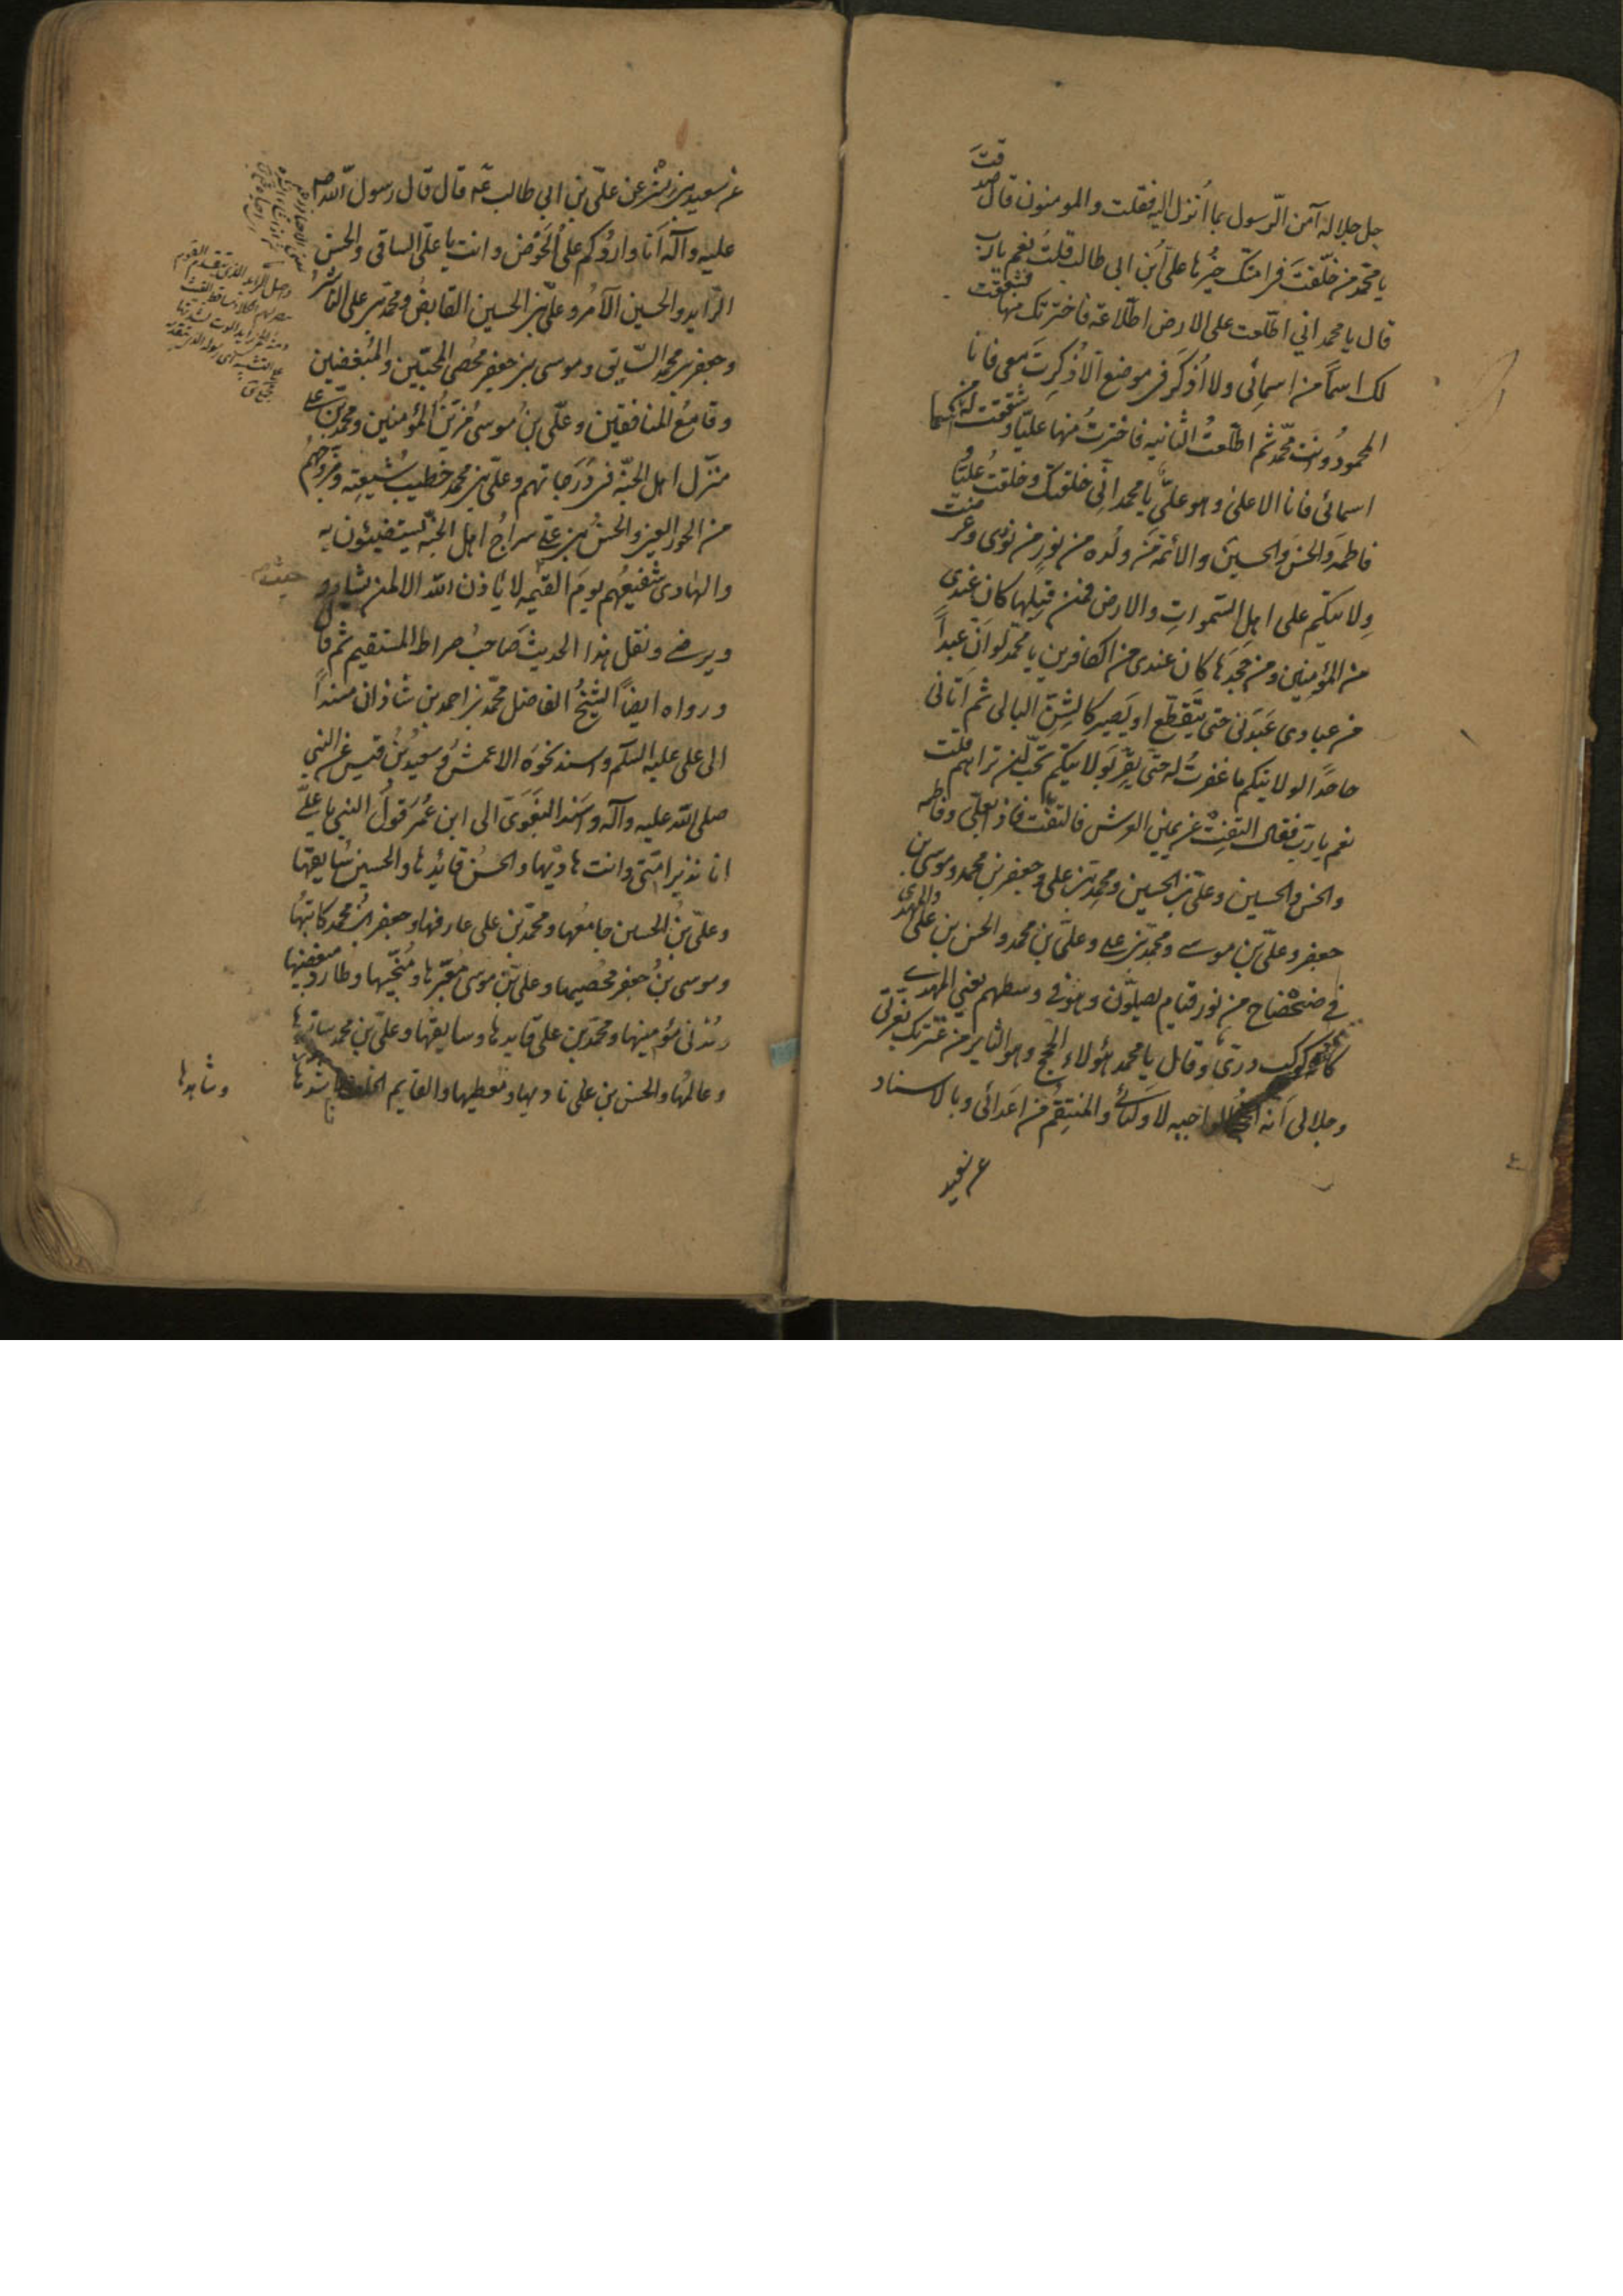 جل جلاله آمن الرسول بما أنزل اليه فقلت والمومنون قال صدقت
يا محمد من خلّفت في امتك خيرها على بن ابى طالب قلت نعم يا رب
قال يا محمد اني اطّلعت على الارض اطّلاعة فاخترتك منها فشققت
لك اسمًا من اسمائى ولا اُذكر فى موضع الا ذُكرت معى فانا
المحمود وانت محمّد ثم اطّلعتُ الثانيه فاخترتُ منها عليّا وشققت له اسما من
اسمائى فانا الاعلى وهو علىّ يا محمد انّى خلقتك وخلقت عليّا و
فاطمة والحسن والحسين والائمة من ولده من نور من نورى وعرضت
ولايتكم على اهل السّموات والارض فمن قبلها كان عندى
من المؤمنين ومن جحدها كان عندى من الكافرين يا محمّد لو انّ عبداً
من عبادى عبدنى حتى يتقطّع او يصير كالشنّ البالى ثم اتانى
جاحدًا لولايتكم ما غفرتُ له حتى يقرّ بولايتكم تحبّ ان تراهم قلت
نعم يا ربّ فقال التفت عن يمين العرش فالتفتّ فاذا بعلىّ وفاطمه
والحسن والحسين وعلىّ بن الحسين ومحمد بن على وجعفر بن محمد وموسى بن
جعفر وعلىّ بن موسى ومحمّد بن على وعلىّ بن محمد والحسن بن على والمهدى
في ضحضاح من نور قيام يصلّون وهو في وسطهم يعنى المهدى
كانه كوكب درّى وقال يا محمد هؤلاء الحجج وهو الثاير من عترتك بعزّتى
وجلالى انه الحجة الواجبه لاوليائى والمنتقم من اعدائى وبالاسناد
عن سعيد
عن سعيد بن بشر عن علىّ بن ابي طالب عه قال قال رسول الله ص
عليه وآله انا واردكم على الحوض وانت يا علىّ الساقى والحسن
الرّايد والحسين الآمر وعلىّ بن الحسين القابض ومحمّد بن على الناشر
وجعفر بن محمد السّايق وموسى بن جعفر محصى المحبّين والمبغضين
وقامع المنافقين وعلىّ بن موسى مزيّن المؤمنين ومحمد بن على
منزّل اهل الجنّه فى درجاتهم وعلىّ بن محمد خطيب شيعته ومزوّجهم
من الحور العين والحسن بن على سراج اهل الجنّه يستضيئون به
والهادى شفيعهم يوم القيمه لا ياذن الله الا لمن يشاء و
حيث
ويرضى ونقل هذا الحديث صاحب صراط المستقيم ثم قال
ورواه ايضاً الشيخ الفاضل محمّد بن احمد بن شاذان مسنداً
الى على عليه السلم واسند نحوه الاعمش وسعيد بن قيس عن النبي
صلى الله عليه وآله واسند البغوى الى ابن عمر قول النبى يا علىّ
انا نذير امّتى وانت هاديها والحسن قائدها والحسين سايقها
وعلىّ بن الحسين جامعها ومحمّد بن على عارفها وجعفر بن محمد كاتبها
وموسى بن جعفر محصيها وعلىّ بن موسى معبّرها ومنجّيها وطارد مبغضيها
ومدنى مؤمنيها ومحمّد بن على قايدها وسايقها وعلىّ بن محمد ساترها
وعالمها والحسن بن على ناديها ومعطيها والقايم الخلف
وشاهدها